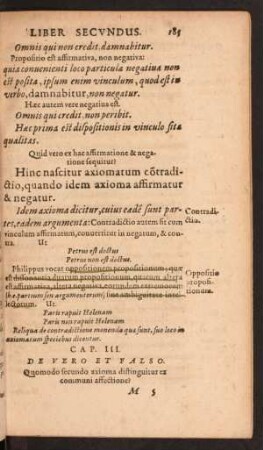 LIBER SECVNDUS. 185
Omnis qui non credit, damnabitur.
Propositio est affirmativa, non negativa:
quia convenienti loco particula negativa non
est posita, ipsum enim vinculum, quod est in
verbo, damnabitur, non negatur.
Hæc autem vere negativa est.
Omnis qui credit non peribit.
Hæc prima est dispositionis in vinculo sita
qualitas.
Quid vero ex hac affirmatione & nega-
tione sequitur?
Hinc nascitur axiomatum cõtradi-
ctio, quando idem axioma affirmatur
& negatur.
Idem axioma dicitur, cuius eadẽ sunt par-
tes, eadem argumenta: Contradictio autem sit cum
vinculum affirmatum, convertitur in negatum, & con-
tra. Ut
Contradi-
ctio.
Petrus est doctus
Petrus non est doctus.
Philippus vocat oppositionem propositionum: quæ
est dissonantia duarum quarum altera
est affirmativa, altera negativa, eorundem
the partium seu argumentorum, sine ambiguitate in-
lectorum. Ut
Oppositio
proposi-
tionum.
Paris rapuit Helenam
Paris non rapuit Helenam
Reliqua de contradictione monenda quæ sunt, suo loco in
axiomatum speciebus dicentur.
CAP. III.
DE VERO ET FALSO.
Quomodo secundo axioma distinguitur ex
communi affectione?
M 5